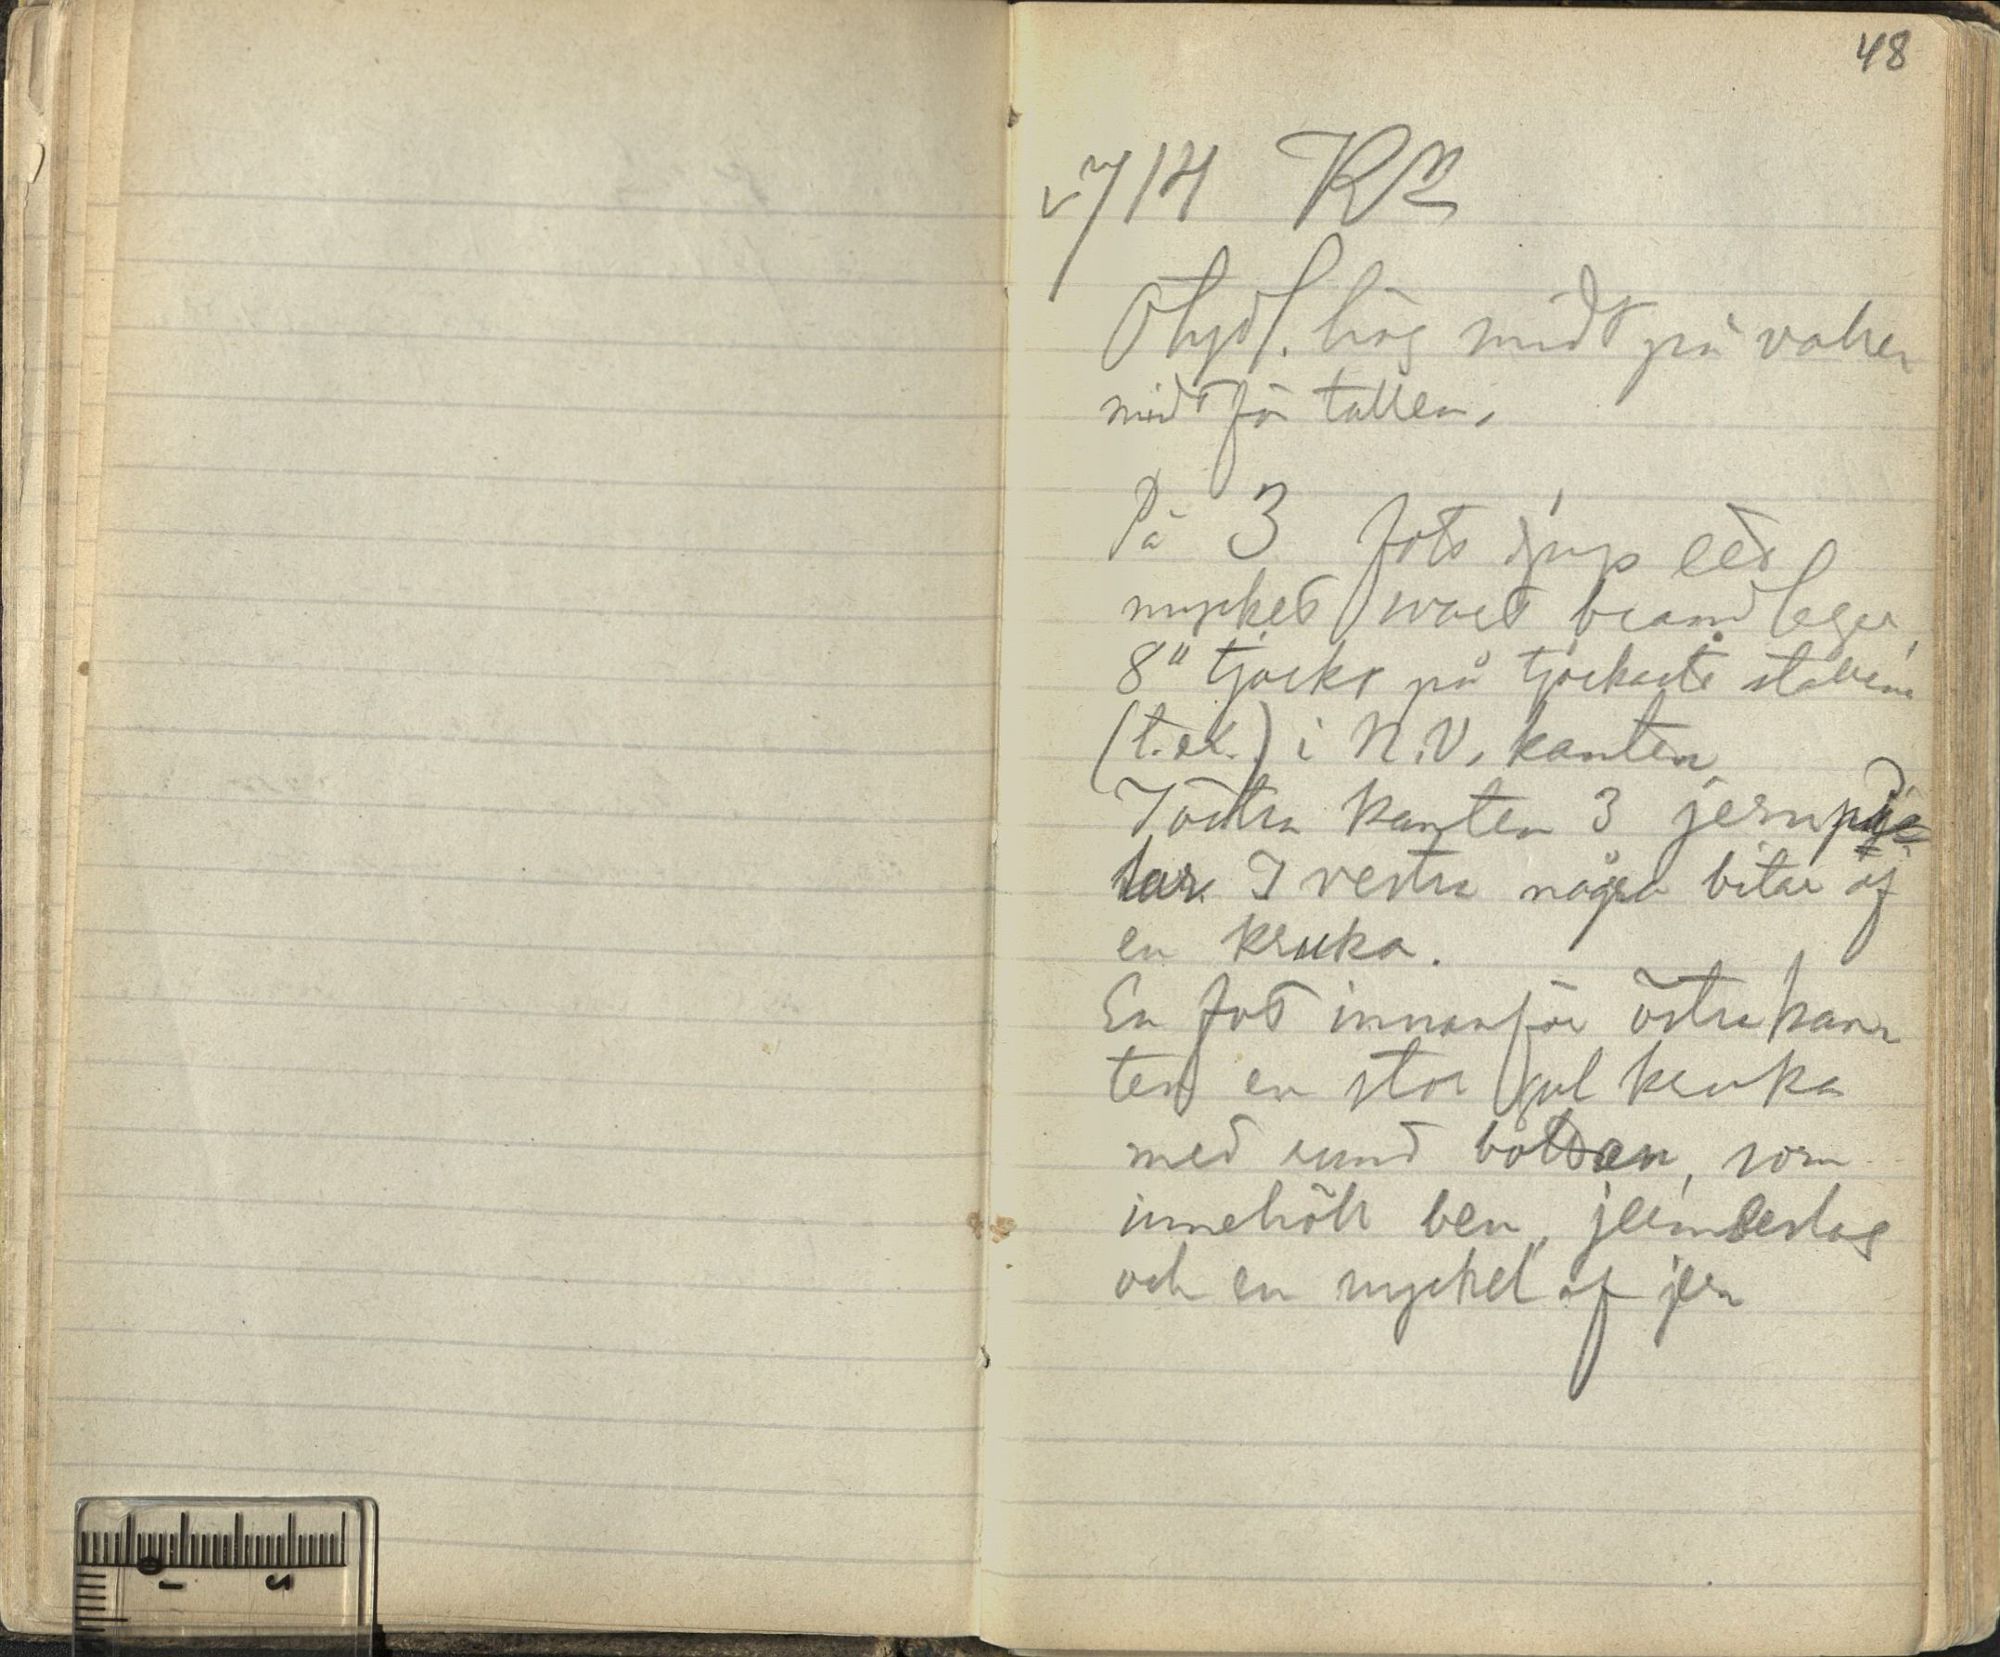 48
714
Otydl. hög midt på
midt för tallen.
På 3 fots djup ett
mycket svart brandlager,
8" tjockt på tjockaste ställena
(t.ex.) i N.V. kanten.
I östra kanten 3 jernpyc
lar. I vestra några bitar af
en kruka.
En fot innanför östra kan
ten en stor gul kruka
med rund botten, som
innehöll ben, jernbeslag
och en nyckel af jern
0
1
2